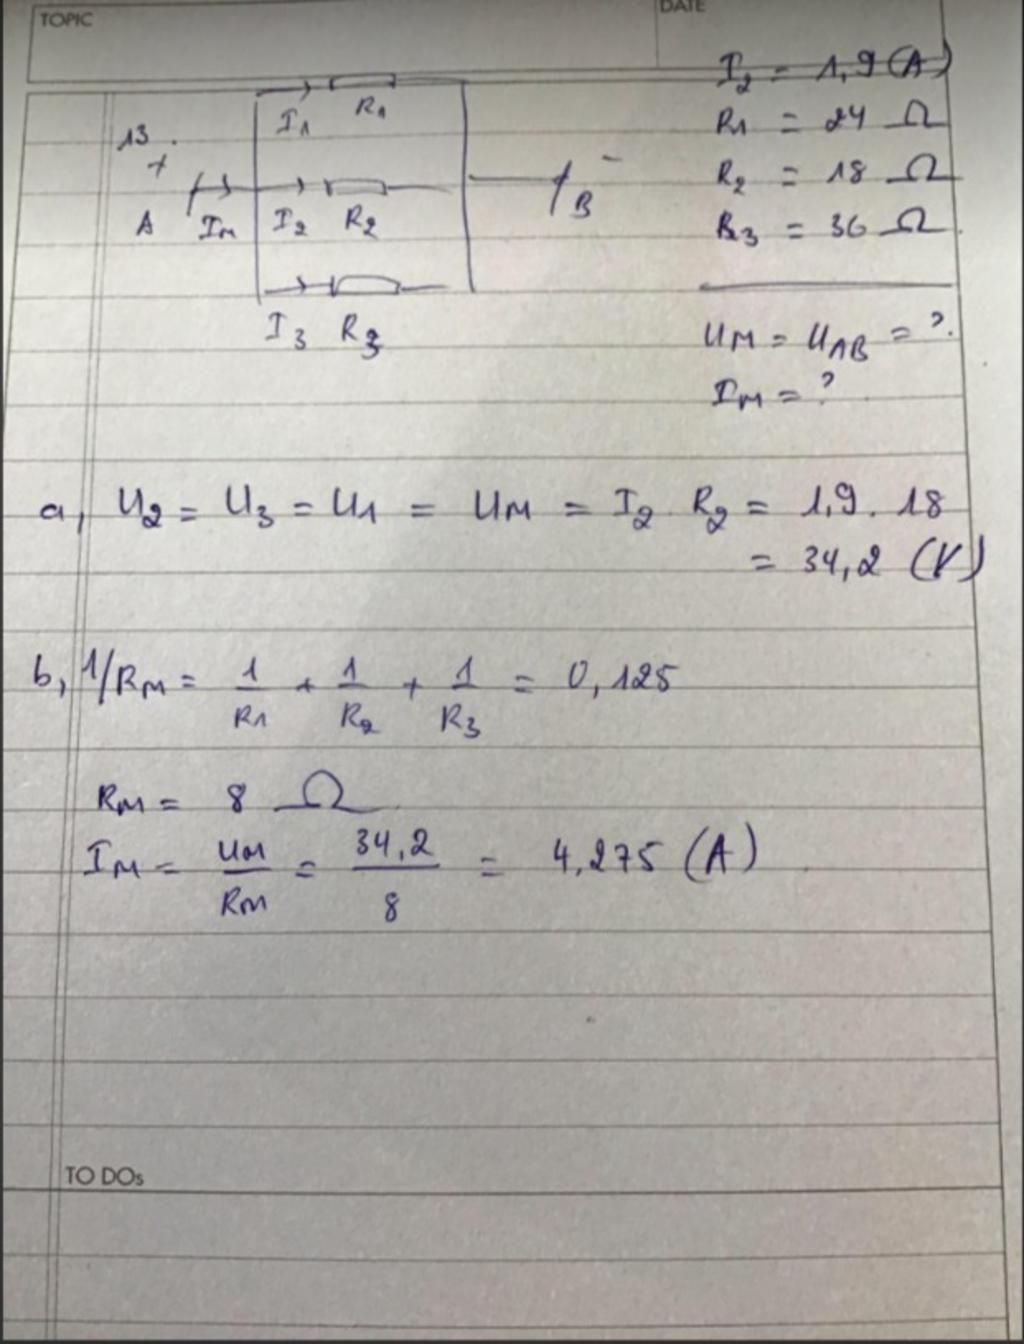 TOPIC
DATE
13.
I1 R1
+
A IM I2 R2
-
B
I3 R3
I2 = 1,9 (A)
R1 = 24 Ω
R2 = 18 Ω
R3 = 36 Ω
UM = UAB = ?
IM = ?
a, U2 = U3 = U1 = UM = I2 R2 = 1,9. 18
= 34,2 (V)
b, 1/RM = 1/R1 + 1/R2 + 1/R3 = 0,125
RM = 8 Ω
IM = UM/RM = 34,2/8 = 4,275 (A)
TO DOs